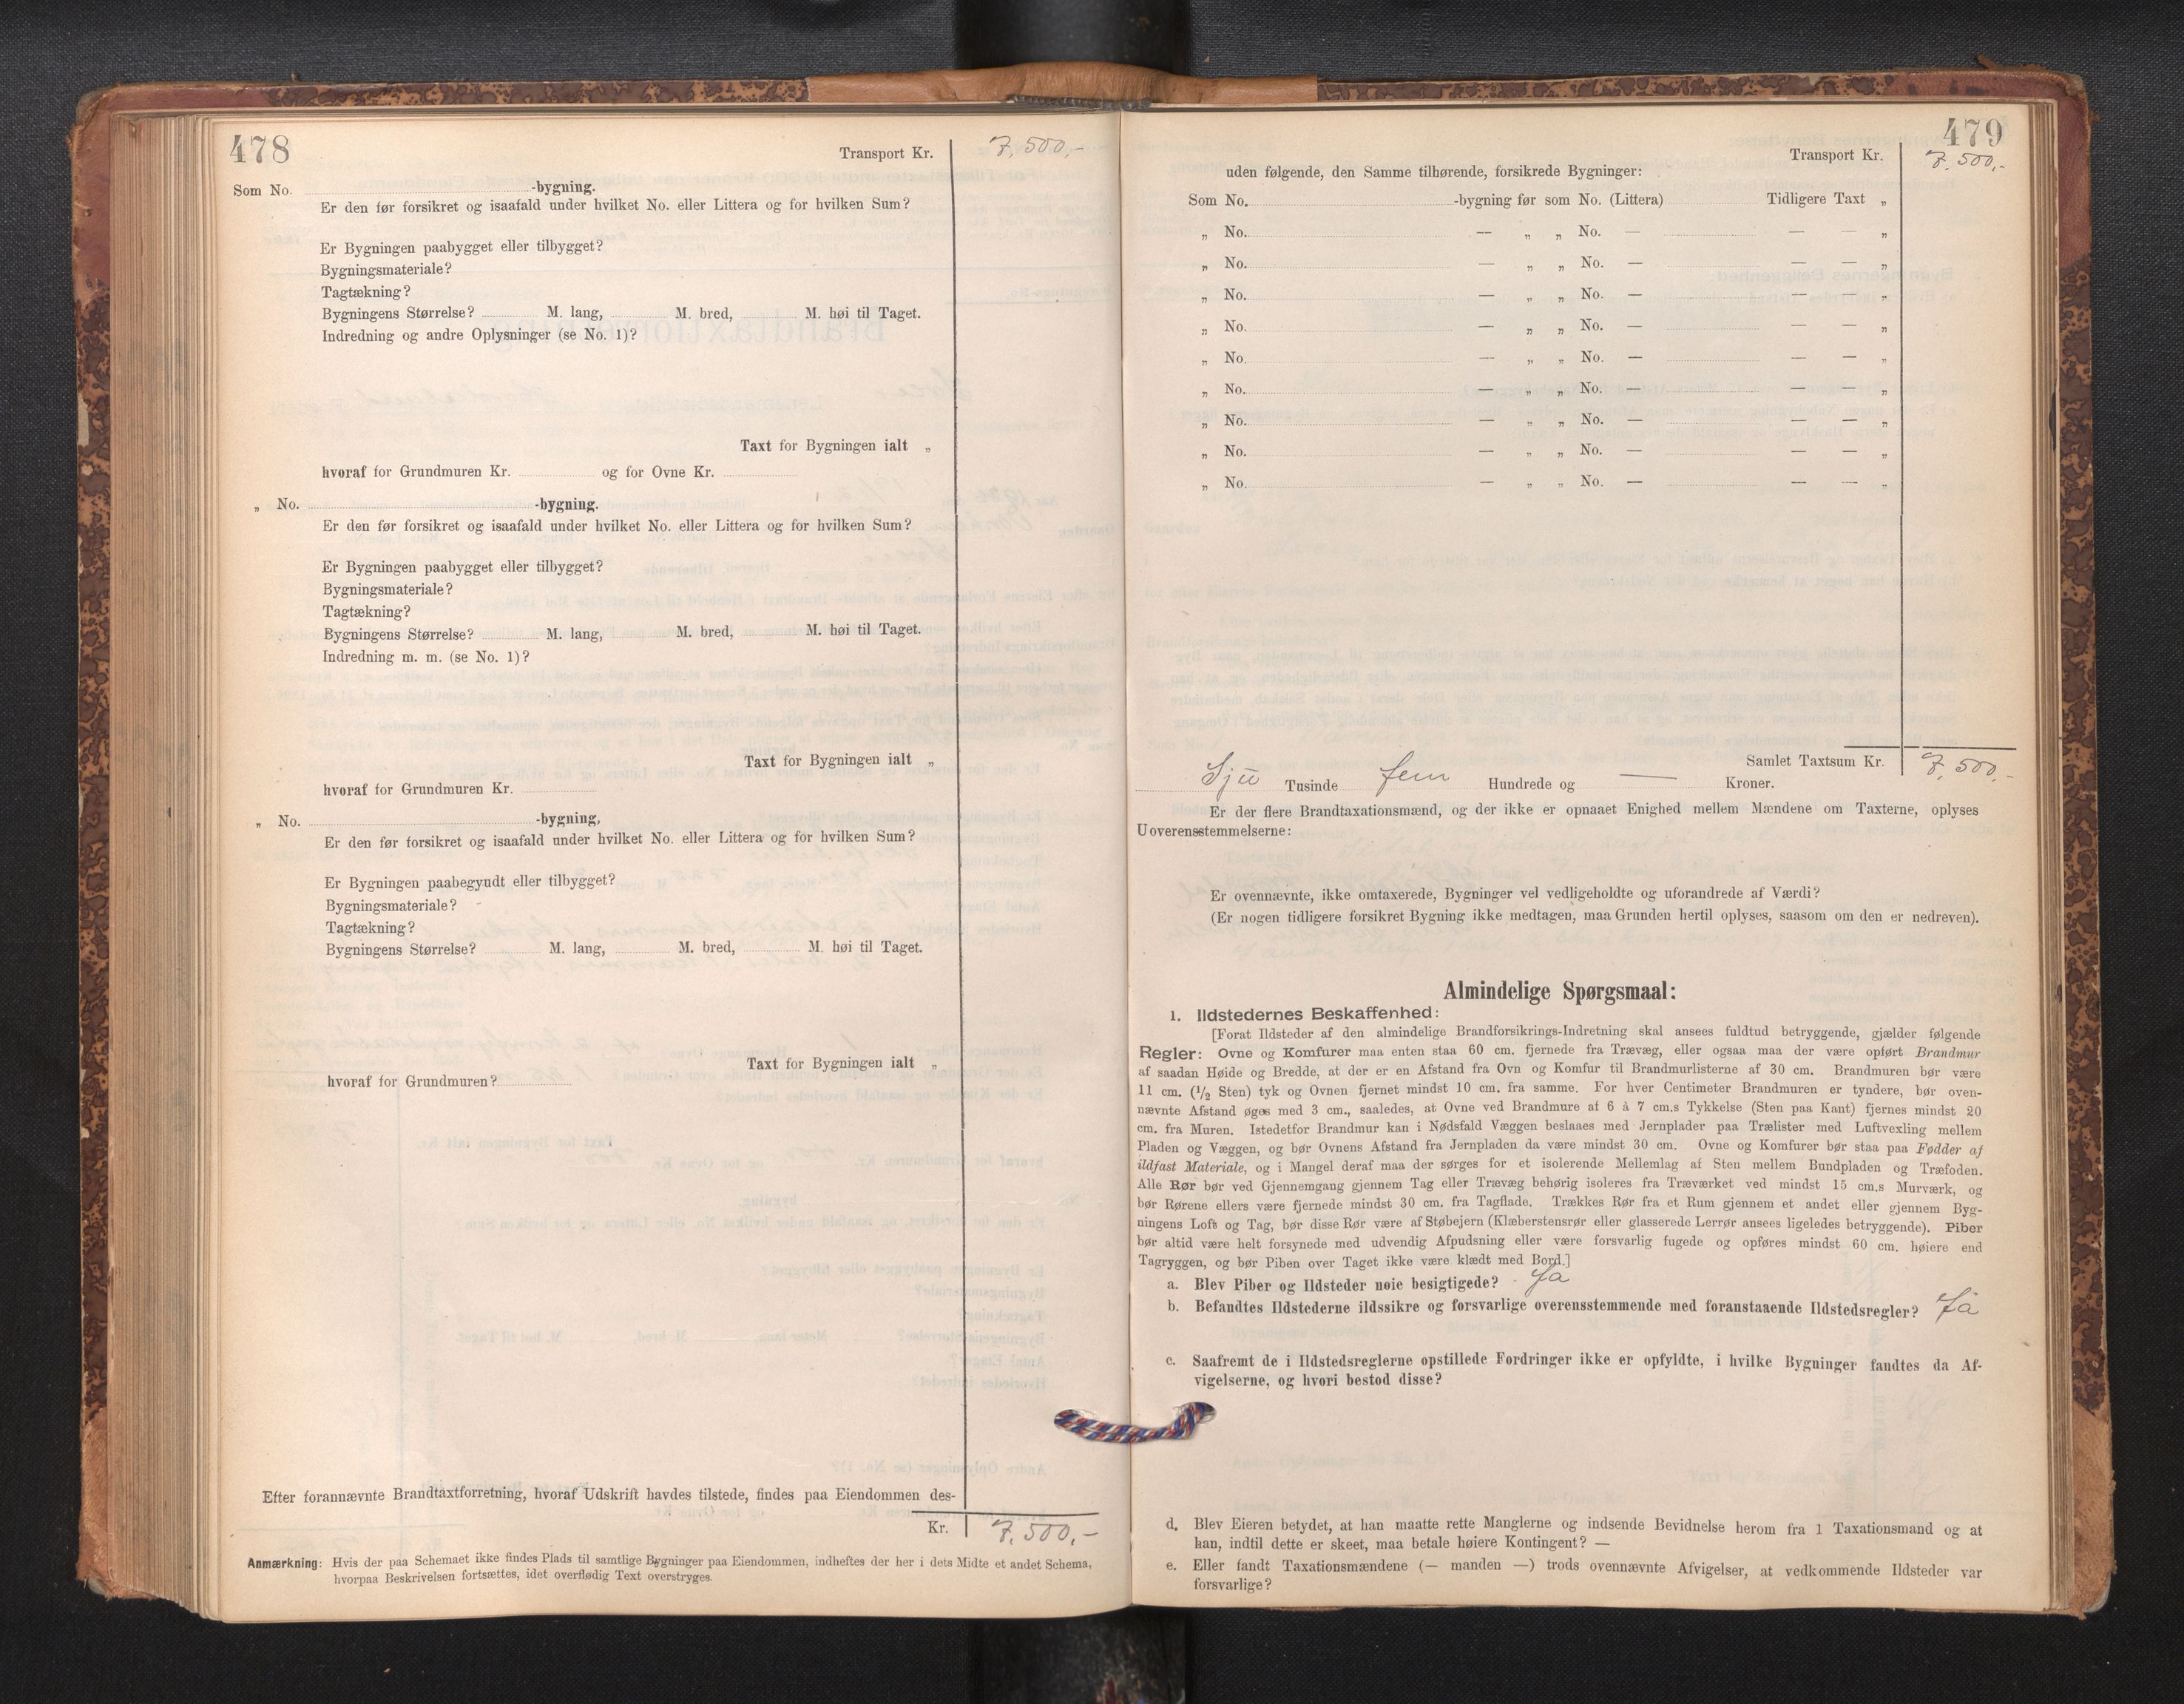 478
Transport Kr. 7,500,-
Som No. -bygning.
Er den før forsikret og isaafald under hvilket No. eller Littera og for hvilken Sum?
Er Bygningen paabygget eller tilbygget?
Bygningsmateriale?
Tagtækning?
Bygningens Størrelse? M. lang, M. bred, M. høi til Taget.
Indredning og andre Oplysninger (se No. 1)?
Taxt for Bygningen ialt „
hvoraf for Grundmuren Kr. og for Ovne Kr.
„ No. -bygning.
Er den før forsikret og isaafald under hvilket No. eller Littera og for hvilken Sum?
Er Bygningen paabygget eller tilbygget?
Bygningsmateriale?
Tagtækning?
Bygningens Størrelse? M. lang, M. bred, M. høi til Taget.
Indredning m. m. (se No. 1)?
Taxt for Bygningen ialt „
hvoraf for Grundmuren Kr.
„ No. -bygning,
Er den før forsikret og isaafald under hvilket No. eller Littera og for hvilken Sum?
Er Bygningen paabegyndt eller tilbygget?
Bygningsmateriale?
Tagtækning?
Bygningens Størrelse? M. lang, M. bred, M. høi til Taget.
Taxt for Bygningen ialt „
hvoraf for Grundmuren?
Efter forannævnte Brandtaxtforretning, hvoraf Udskrift havdes tilstede, findes paa Eiendommen des-
Kr. 7,500,-
Anmærkning: Hvis der paa Schemaet ikke findes Plads til samtlige Bygninger paa Eiendommen, indheftes der her i dets Midte et andet Schema,
hvorpaa Beskrivelsen fortsættes, idet overflødig Text overstryges.
479
Transport Kr. 7,500,-
uden følgende, den Samme tilhørende, forsikrede Bygninger:
Som No. -bygning før som No. (Littera) Tidligere Taxt „
„ No. — „ „ No. — — — „
„ No. — „ „ No. — — — „
„ No. — „ „ No. — — — „
„ No. — „ „ No. — — — „
„ No. — „ „ No. — — — „
„ No. — „ „ No. — — — „
„ No. — „ „ No. — — — „
„ No. — „ „ No. — — — „
„ No. — „ „ No. — — — „
Samlet Taxtsum Kr. 7,500,-
Sju Tusinde fem Hundrede og — Kroner.
Er der flere Brandtaxationsmænd, og der ikke er opnaaet Enighed mellem Mændene om Taxterne, oplyses
Uoverensstemmelserne:
Er ovennævnte, ikke omtaxerede, Bygninger vel vedligeholdte og uforandrede af Værdi?
(Er nogen tidligere forsikret Bygning ikke medtagen, maa Grunden hertil oplyses, saasom om den er nedreven).
Almindelige Spørgsmaal:
1. Ildstedernes Beskaffenhed:
[Forat Ildsteder af den almindelige Brandforsikrings-Indretning skal ansees fuldtud betryggende, gjælder følgende
Regler: Ovne og Komfurer maa enten staa 60 cm. fjernede fra Trævæg, eller ogsaa maa der være opført Brandmur
af saadan Høide og Bredde, at der er en Afstand fra Ovn og Komfur til Brandmurlisterne af 30 cm. Brandmuren bør være
11 cm. (1/2 Sten) tyk og Ovnen fjernet mindst 10 cm. fra samme. For hver Centimeter Brandmuren er tyndere, bør oven-
nævnte Afstand øges med 3 cm., saaledes, at Ovne ved Brandmure af 6 à 7 cm.s Tykkelse (Sten paa Kant) fjernes mindst 20
cm. fra Muren. Istedetfor Brandmur kan i Nødsfald Væggen beslaaes med Jernplader paa Trælister med Luftvexling mellem
Pladen og Væggen, og bør Ovnens Afstand fra Jernpladen da være mindst 30 cm. Ovne og Komfurer bør staa paa Fødder af
ildfast Materiale, og i Mangel deraf maa der sørges for et isolerende Mellemlag af Sten mellem Bundpladen og Træfoden.
Alle Rør bør ved Gjennemgang gjennem Tag eller Trævæg behørig isoleres fra Træværket ved mindst 15 cm.s Murværk, og
bør Rørene ellers være fjernede mindst 30 cm. fra Tagflade. Trækkes Rør fra et Rum gjennem et andet eller gjennem Byg-
ningens Loft og Tag, bør disse Rør være af Støbejern (Klæberstensrør eller glasserede Lerrør ansees ligeledes betryggende). Piber
bør altid være helt forsynede med udvendig Afpudsning eller være forsvarlig fugede og opføres mindst 60 cm. høiere end
Tagryggen, og bør Piben over Taget ikke være klædt med Bord.]
a. Blev Piber og Ildsteder nøie besigtigede? Ja
b. Befandtes Ildstederne ildssikre og forsvarlige overensstemmende med foranstaaende Ildstedsregler? Ja
c. Saafremt de i Ildstedsreglerne opstillede Fordringer ikke er opfyldte, i hvilke Bygninger fandtes da Af-
vigelserne, og hvori bestod disse?
d. Blev Eieren betydet, at han maatte rette Manglerne og indsende Bevidnelse herom fra 1 Taxationsmand og at
han, indtil dette er skeet, maa betale høiere Kontingent? —
e. Eller fandt Taxationsmændene (— manden —) trods ovennævnte Afvigelser, at vedkommende Ildsteder var
forsvarlige?